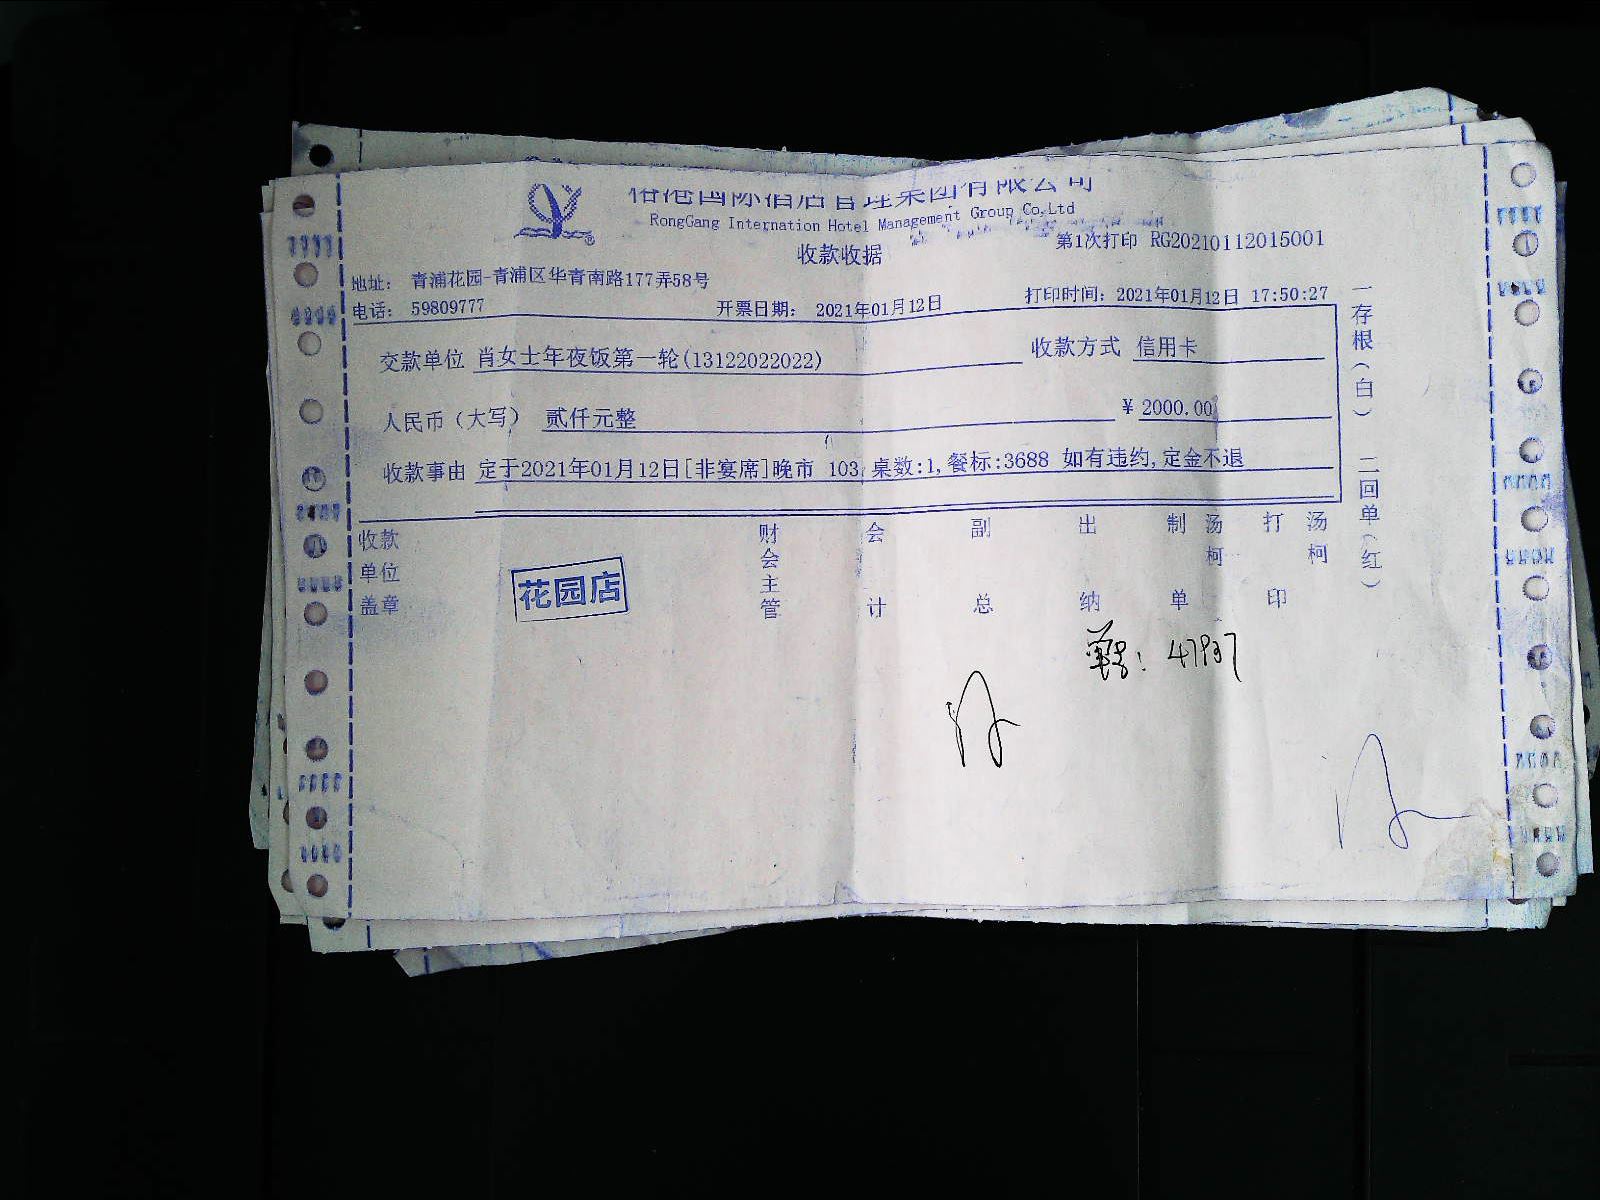 裕港国际酒店管理集团有限公司
RongGang International Hotel Management Group Co.Ltd
收款收据
第1次打印 RG20210112015001
地址: 青浦花园-青浦区华青南路177弄58号
电话: 59809777 开票日期: 2021年01月12日 打印时间: 2021年01月12日 17:50:27
交款单位 肖女士年夜饭第一轮(13122022022) 收款方式 信用卡
人民币(大写) 贰仟元整 ¥ 2000.00
收款事由 定于2021年01月12日[非宴席]晚市 103,桌数:1,餐标:3688 如有违约,定金不退
一存根(白) 二回单(红)
收款单位盖章
花园店
财会主管 会计 副总 出纳 制单 汤柯 打印 汤柯
单号: 47937